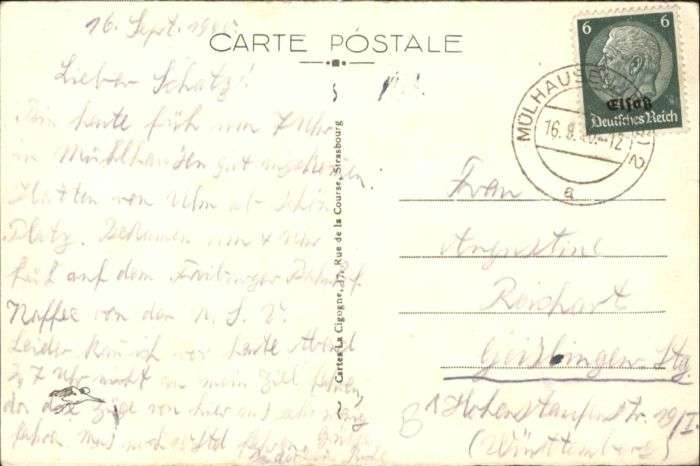 16. Sept. 1940
CARTE POSTALE
Lieber Schatz!
Bin heute früh um 7 Uhr
in Mühlhausen gut angekommen
Hatten von Ulm ab schön
Platz. Bekamen um 4 Uhr
früh auf dem Freiburger Bahnhof
Kaffee von der N. S. V.
Leider kann ich vor heute Abend
7 Uhr nicht an mein Ziel fahren
da die Züge von hier aus sehr
fahren. Muss noch
Cartes La Cigogne, 37, Rue de la Course, Strasbourg
6 6
Elsaß
Deutsches Reich
MÜLHAUSEN (ELS) 2
16.9.40.-12
a
Frau
Augustine
Reichart
Geislingen-Stg
Hohenstaufenstr. 19/I
(Württemberg)